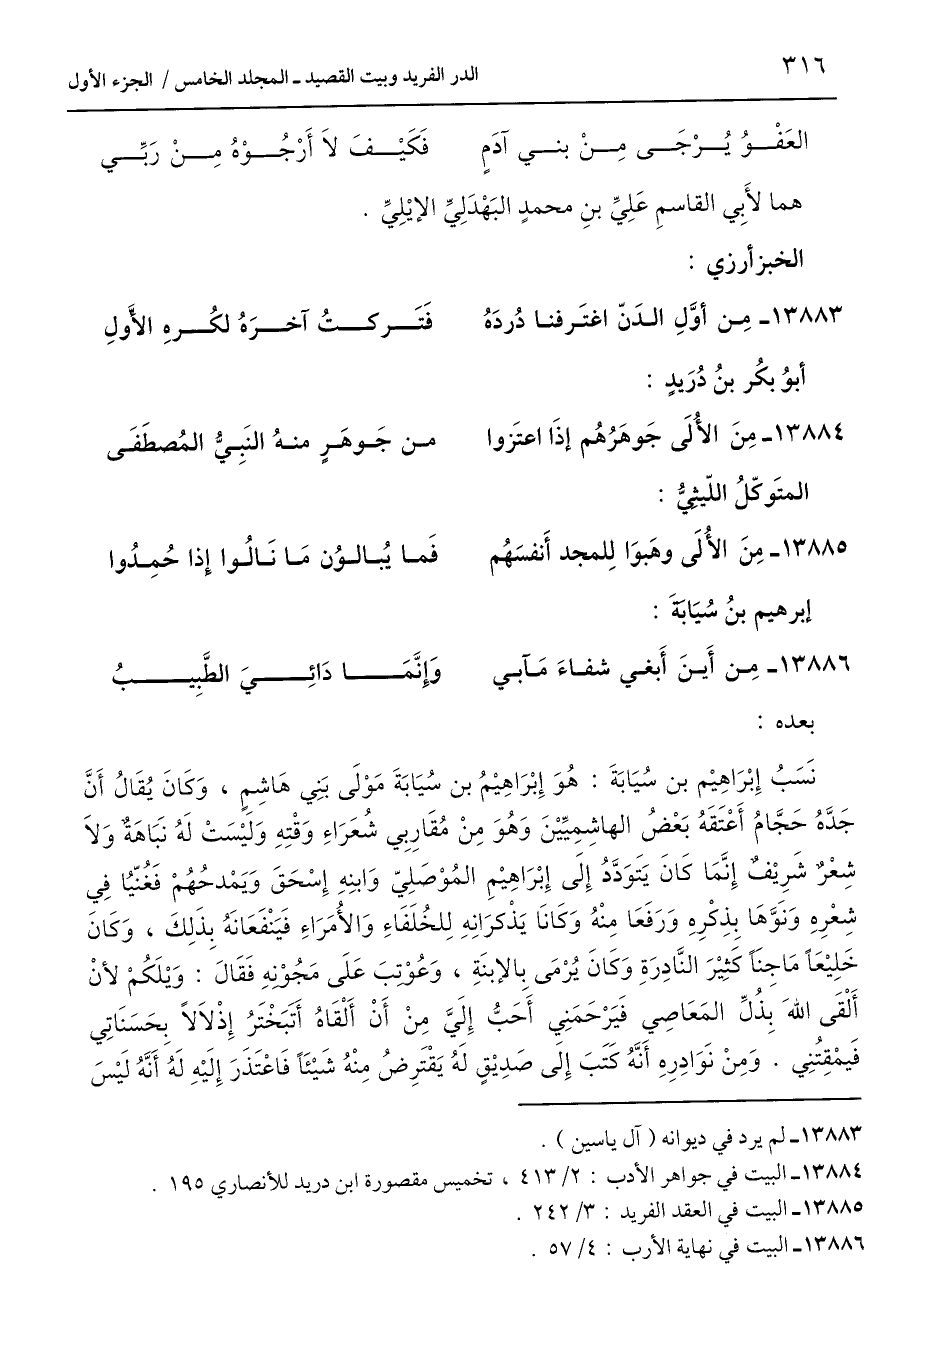 ٣١٦
الدر الفريد وبيت القصيد ـ المجلد الخامس / الجزء الأول
العَفْوُ يُرْجَى مِنْ بني آدَمٍ فَكَيْفَ لاَ أَرْجُوْهُ مِنْ رَبِّي
هما لأَبِي القاسمِ عَلِيِّ بنِ محمدٍ البَهْدَلِيِّ الإيْلِيِّ .
الخبزأرزي :
١٣٨٨٣ـ مِن أوَّلِ الدَنّ اغتَرفنا دُردَهُ فَتَركتُ آخرَهُ لكُرهِ الأَّولِ
أبوُ بكُر بنُ دُرَيدٍ :
١٣٨٨٤ـ مِنَ الأُلَى جَوهَرُهُم إذَا اعتَزوا من جَوهَرٍ منهُ النَبِيُّ المُصطَفَى
المتَوكّلُ اللّيثِيُّ :
١٣٨٨٥ـ مِنَ الأُلَى وهَبوَا لِلمجد أنفسَهُم فَما يُبالوُن مَا نَالُوا إذا حُمِدُوا
إبرهيم بنُ سُيَابَةَ :
١٣٨٨٦ـ مِن أَينَ أَبغي شفاءَ مَآبي وَإنَّمَا دَائِيَ الطَّبِيبُ
بعده :
نَسَبُ إبْرَاهِيْم بن سُيَابَةَ : هُوَ إبْرَاهِيْمُ بن سُيَابَةَ مَوْلَى بَنِي هَاشِمٍ ، وَكَانَ يُقَالُ أنَّ
جَدَّهُ حَجَّامُ أَعْتَقَهُ بَعْضُ الهاشِمِيِّيْنَ وَهُوَ مِنْ مُقَاربِي شُعَرَاءِ وَقْتِهِ وَلَيْسَتْ لَهُ نَبَاهَةٌ وَلاَ
شِعْرٌ شَرِيْفٌ إنَّمَا كَانَ يَتَوَدَّدُ إلَى إبْرَاهِيْمِ المُوْصَلِيّ وَابنِهِ إسْحَقَ وَيَمْدحُهُمْ فَغُنّيَا فِي
شعْرِهِ وَنَوَّهَا بِذِكْرِهِ وَرَفَعَا مِنْهُ وَكَانَا يَذْكرَانِهِ لِلخُلَفَاءِ وَالأُمَرَاءِ فَيَنْفَعَانَهُ بِذَلِكَ ، وَكَانَ
خَلِيْعَاً مَاجِنَاً كَثِيْرَ النَّادِرَةِ وَكَانَ يُرْمَى بِالإبنَةِ ، وَعُوْتِبَ عَلَى مَجُوْنِهِ فَقَالَ : وَيْلَكُمْ لأنْ
أَلْقَى اللهَ بِذُلِّ المَعَاصِي فَيَرْحَمَنِي أَحَبُّ إِلَيَّ مِنْ أَنْ أَلْقَاهُ أَتَبَخْتَرُ إِذْلاَلاً بِحَسَنَاتِي
فَيمْقِتُنِي . وَمِنْ نَوَادِرِهِ أَنَّهُ كَتَبَ إِلَى صَدِيْقٍ لَهُ يَقْتَرِضُ مِنْهُ شَيْئَاً فَاعْتَذَرَ إِلَيْهِ لَهُ أَنَّهُ لَيْسَ
١٣٨٨٣ـ لم يرد في ديوانه ( آل ياسين ) .
١٣٨٨٤ـ البيت في جواهر الأدب : ٢/ ٤١٣ ، تخميس مقصورة ابن دريد للأنصاري ١٩٥ .
١٣٨٨٥ـ البيت في العقد الفريد : ٣/ ٢٤٢ .
١٣٨٨٦ـ البيت في نهاية الأرب : ٤/ ٥٧ .